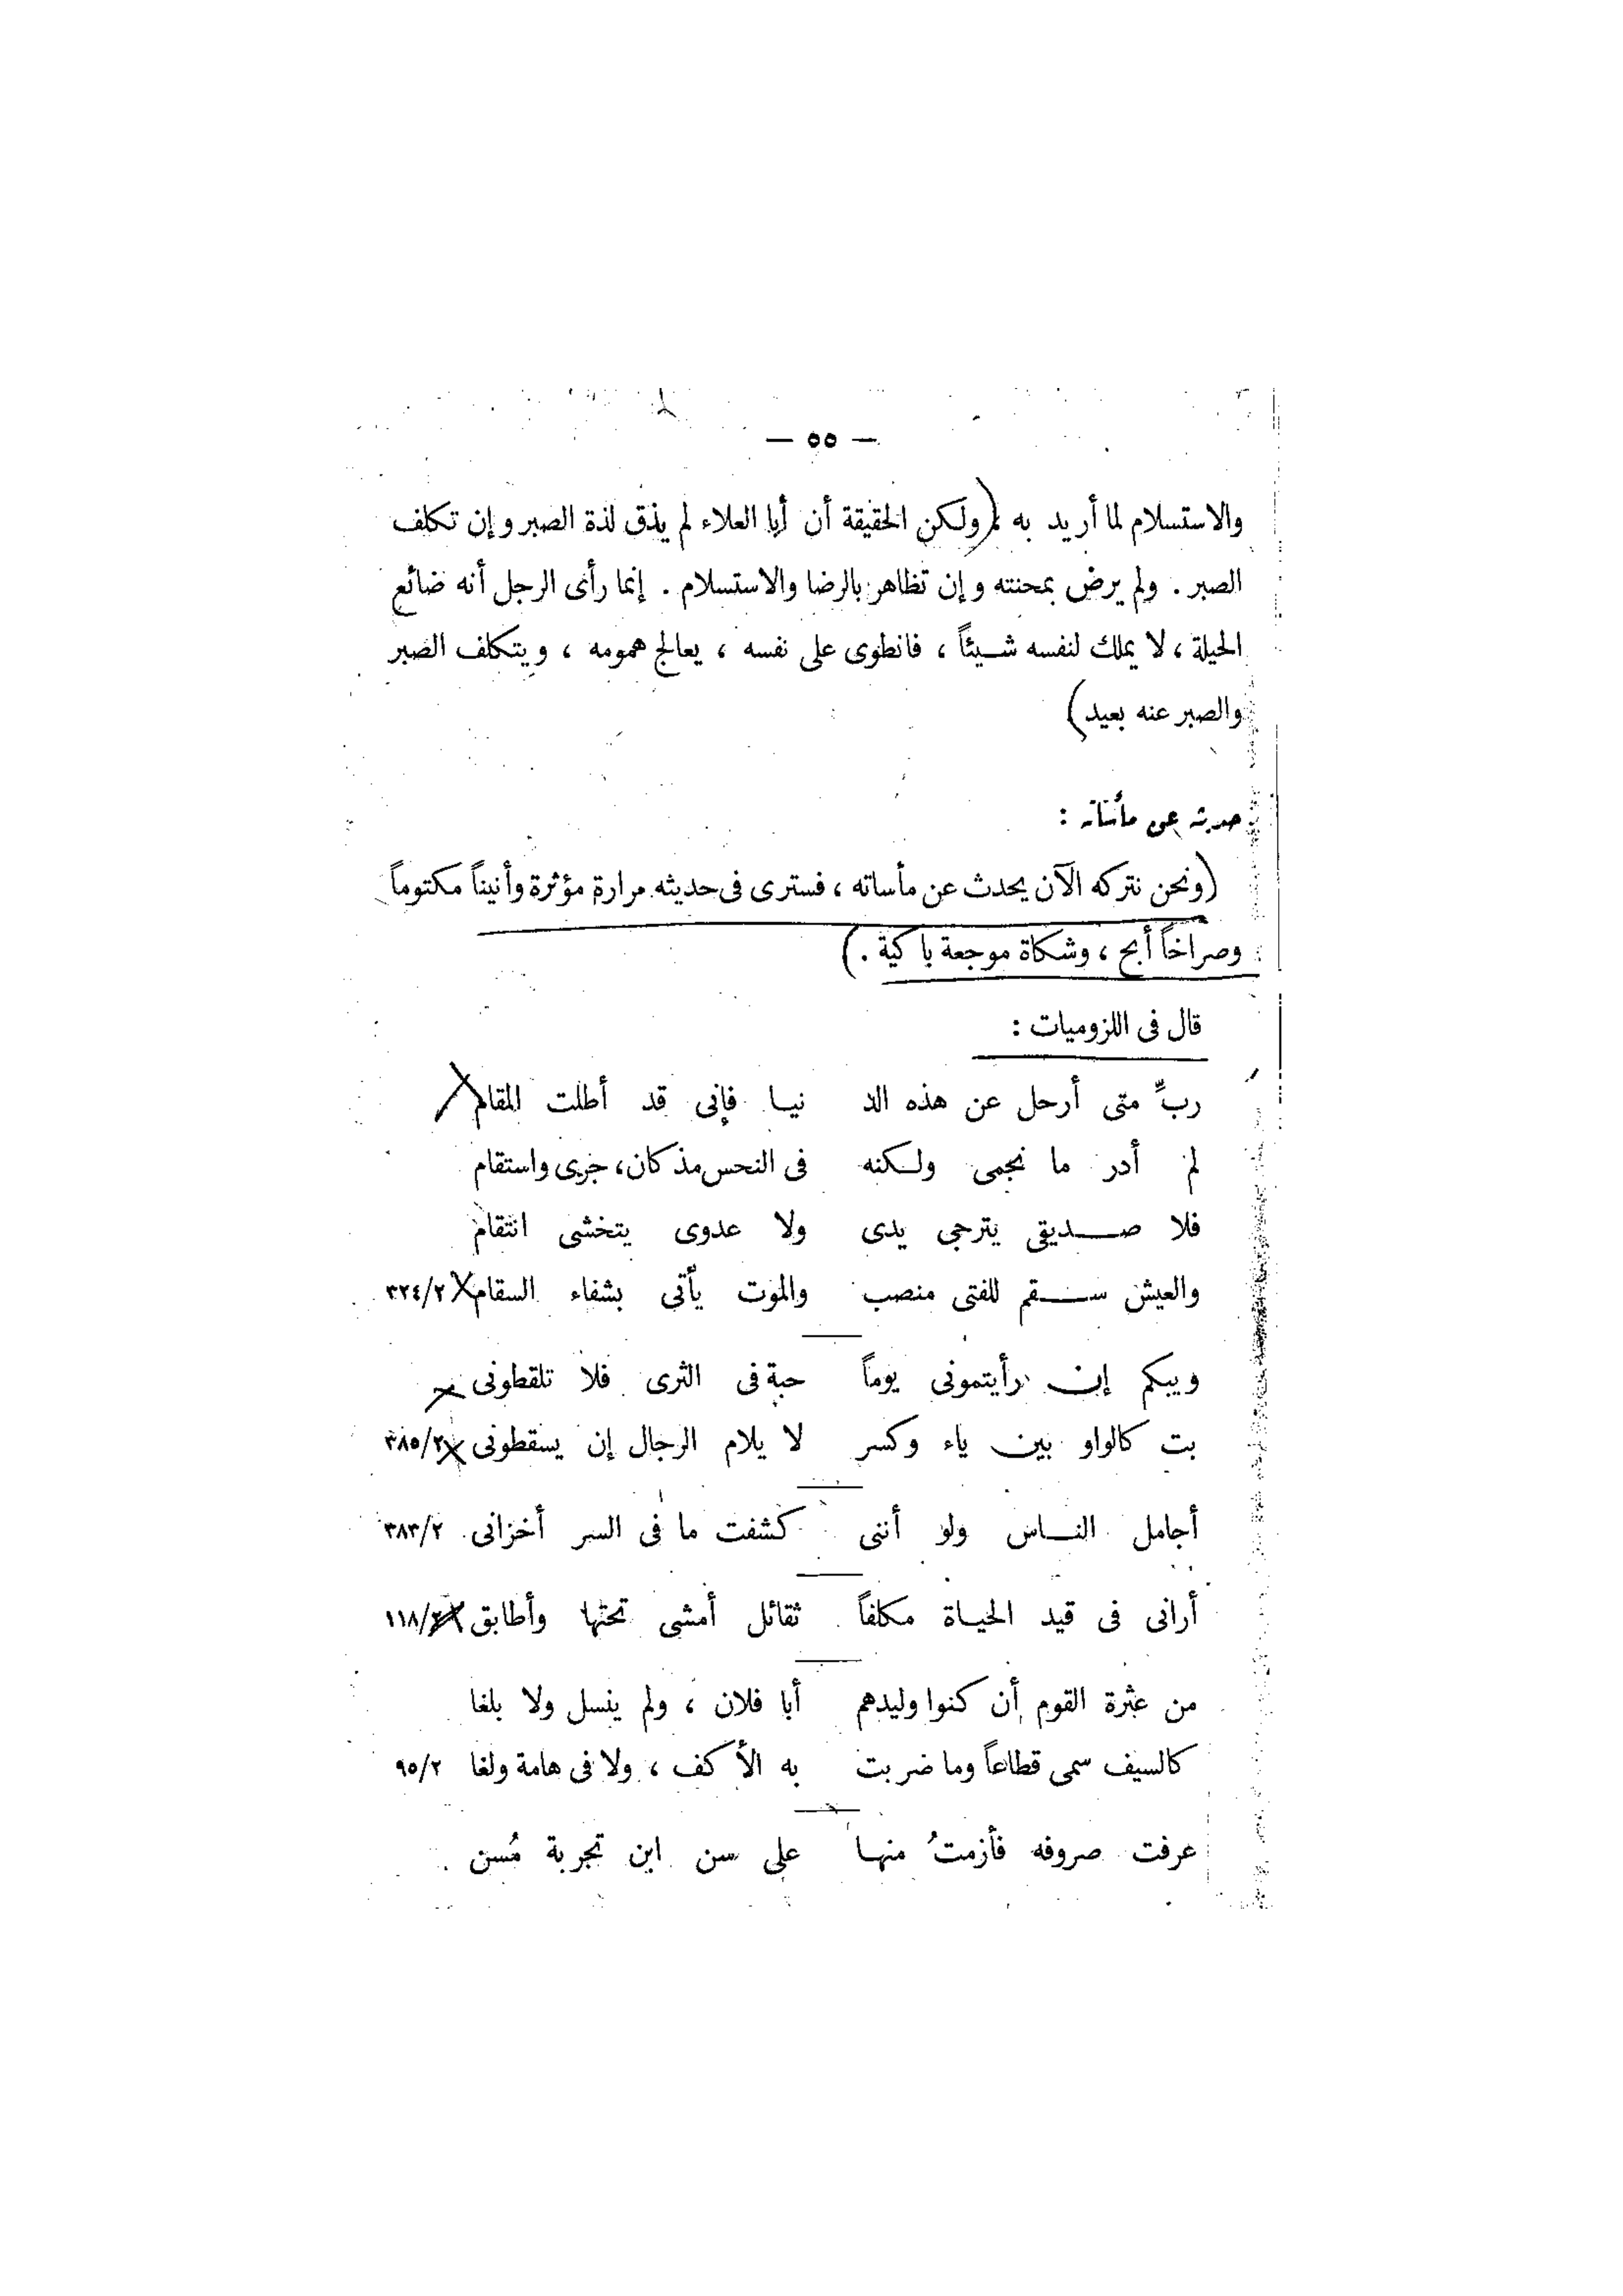 — ٥٥ —
والاستسلام لما أريد به (ولكن الحقيقة أن أبا العلاء لم يذق لذة الصبر وإن تكلف
الصبر . ولم يرض بمحنته وإن تظاهر بالرضا والاستسلام . إنما رأى الرجل أنه ضائع
الحيلة ، لا يملك لنفسه شيئاً ، فانطوى على نفسه ، يعالج همومه ، ويتكلف الصبر
والصبر عنه بعيد)
حديثه عن مأساته :
(ونحن نتركه الآن يحدث عن مأساته ، فسترى فى حديثه مرارة مؤثرة وأنيناً مكتوماً
وصراخاً أبح ، وشكاة موجعة باكية .)
قال فى اللزوميات :
ربِّ متى أرحل عن هذه الد نيا فإنى قد أطلت المقام
لم أدر ما نجمى ولكنه فى النحس مذ كان، جرى واستقام
فلا صديقى يترجى يدى ولا عدوى يتخشى انتقام
والعيش سقم للفتى منصب والموت يأتى بشفاء السقام ٣٢٤/٢
ويبكم إن رأيتمونى يوماً حبة فى الثرى فلا تلقطونى
بت كالواو بين ياء وكسر لا يلام الرجال إن يسقطونى ٣٨٥/٢
أجامل الناس ولو أننى كشفت ما فى السر أخزانى ٣٨٣/٢
أرانى فى قيد الحياة مكلفاً ثقائل أمشى تحتها وأطابق ١١٨/٢
من عثرة القوم أن كنوا وليدهم أبا فلان ، ولم ينسل ولا بلغا
كالسيف سمى قطاعاً وما ضربت به الأكف ، ولا فى هامة ولغا ٩٥/٢
عرفت صروفه فأزمتُ منها على سن ابن تجربة مُسن